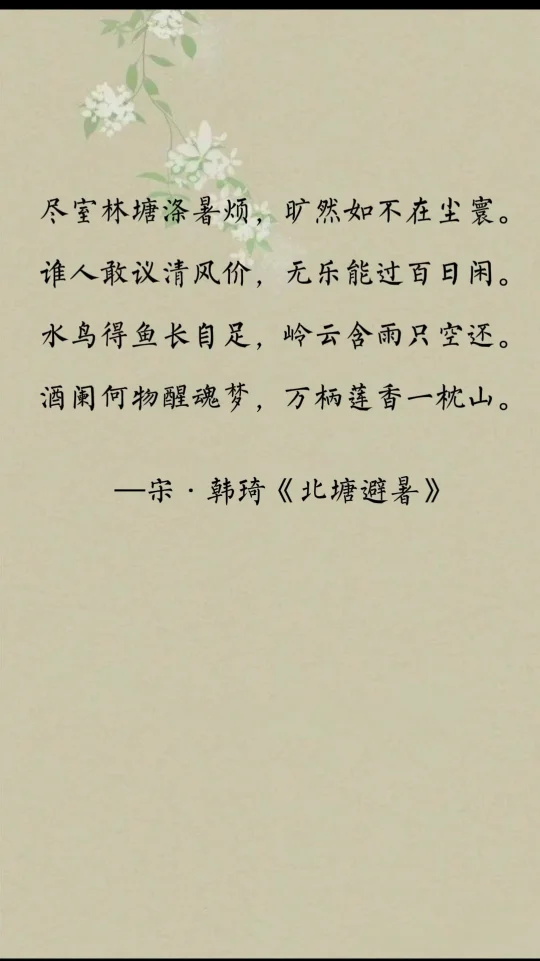 尽室林塘涤暑烦，旷然如不在尘寰。
谁人敢议清风价，无乐能过百日闲。
水鸟得鱼长自足，岭云含雨只空还。
酒阑何物醒魂梦，万柄莲香一枕山。
—宋·韩琦《北塘避暑》